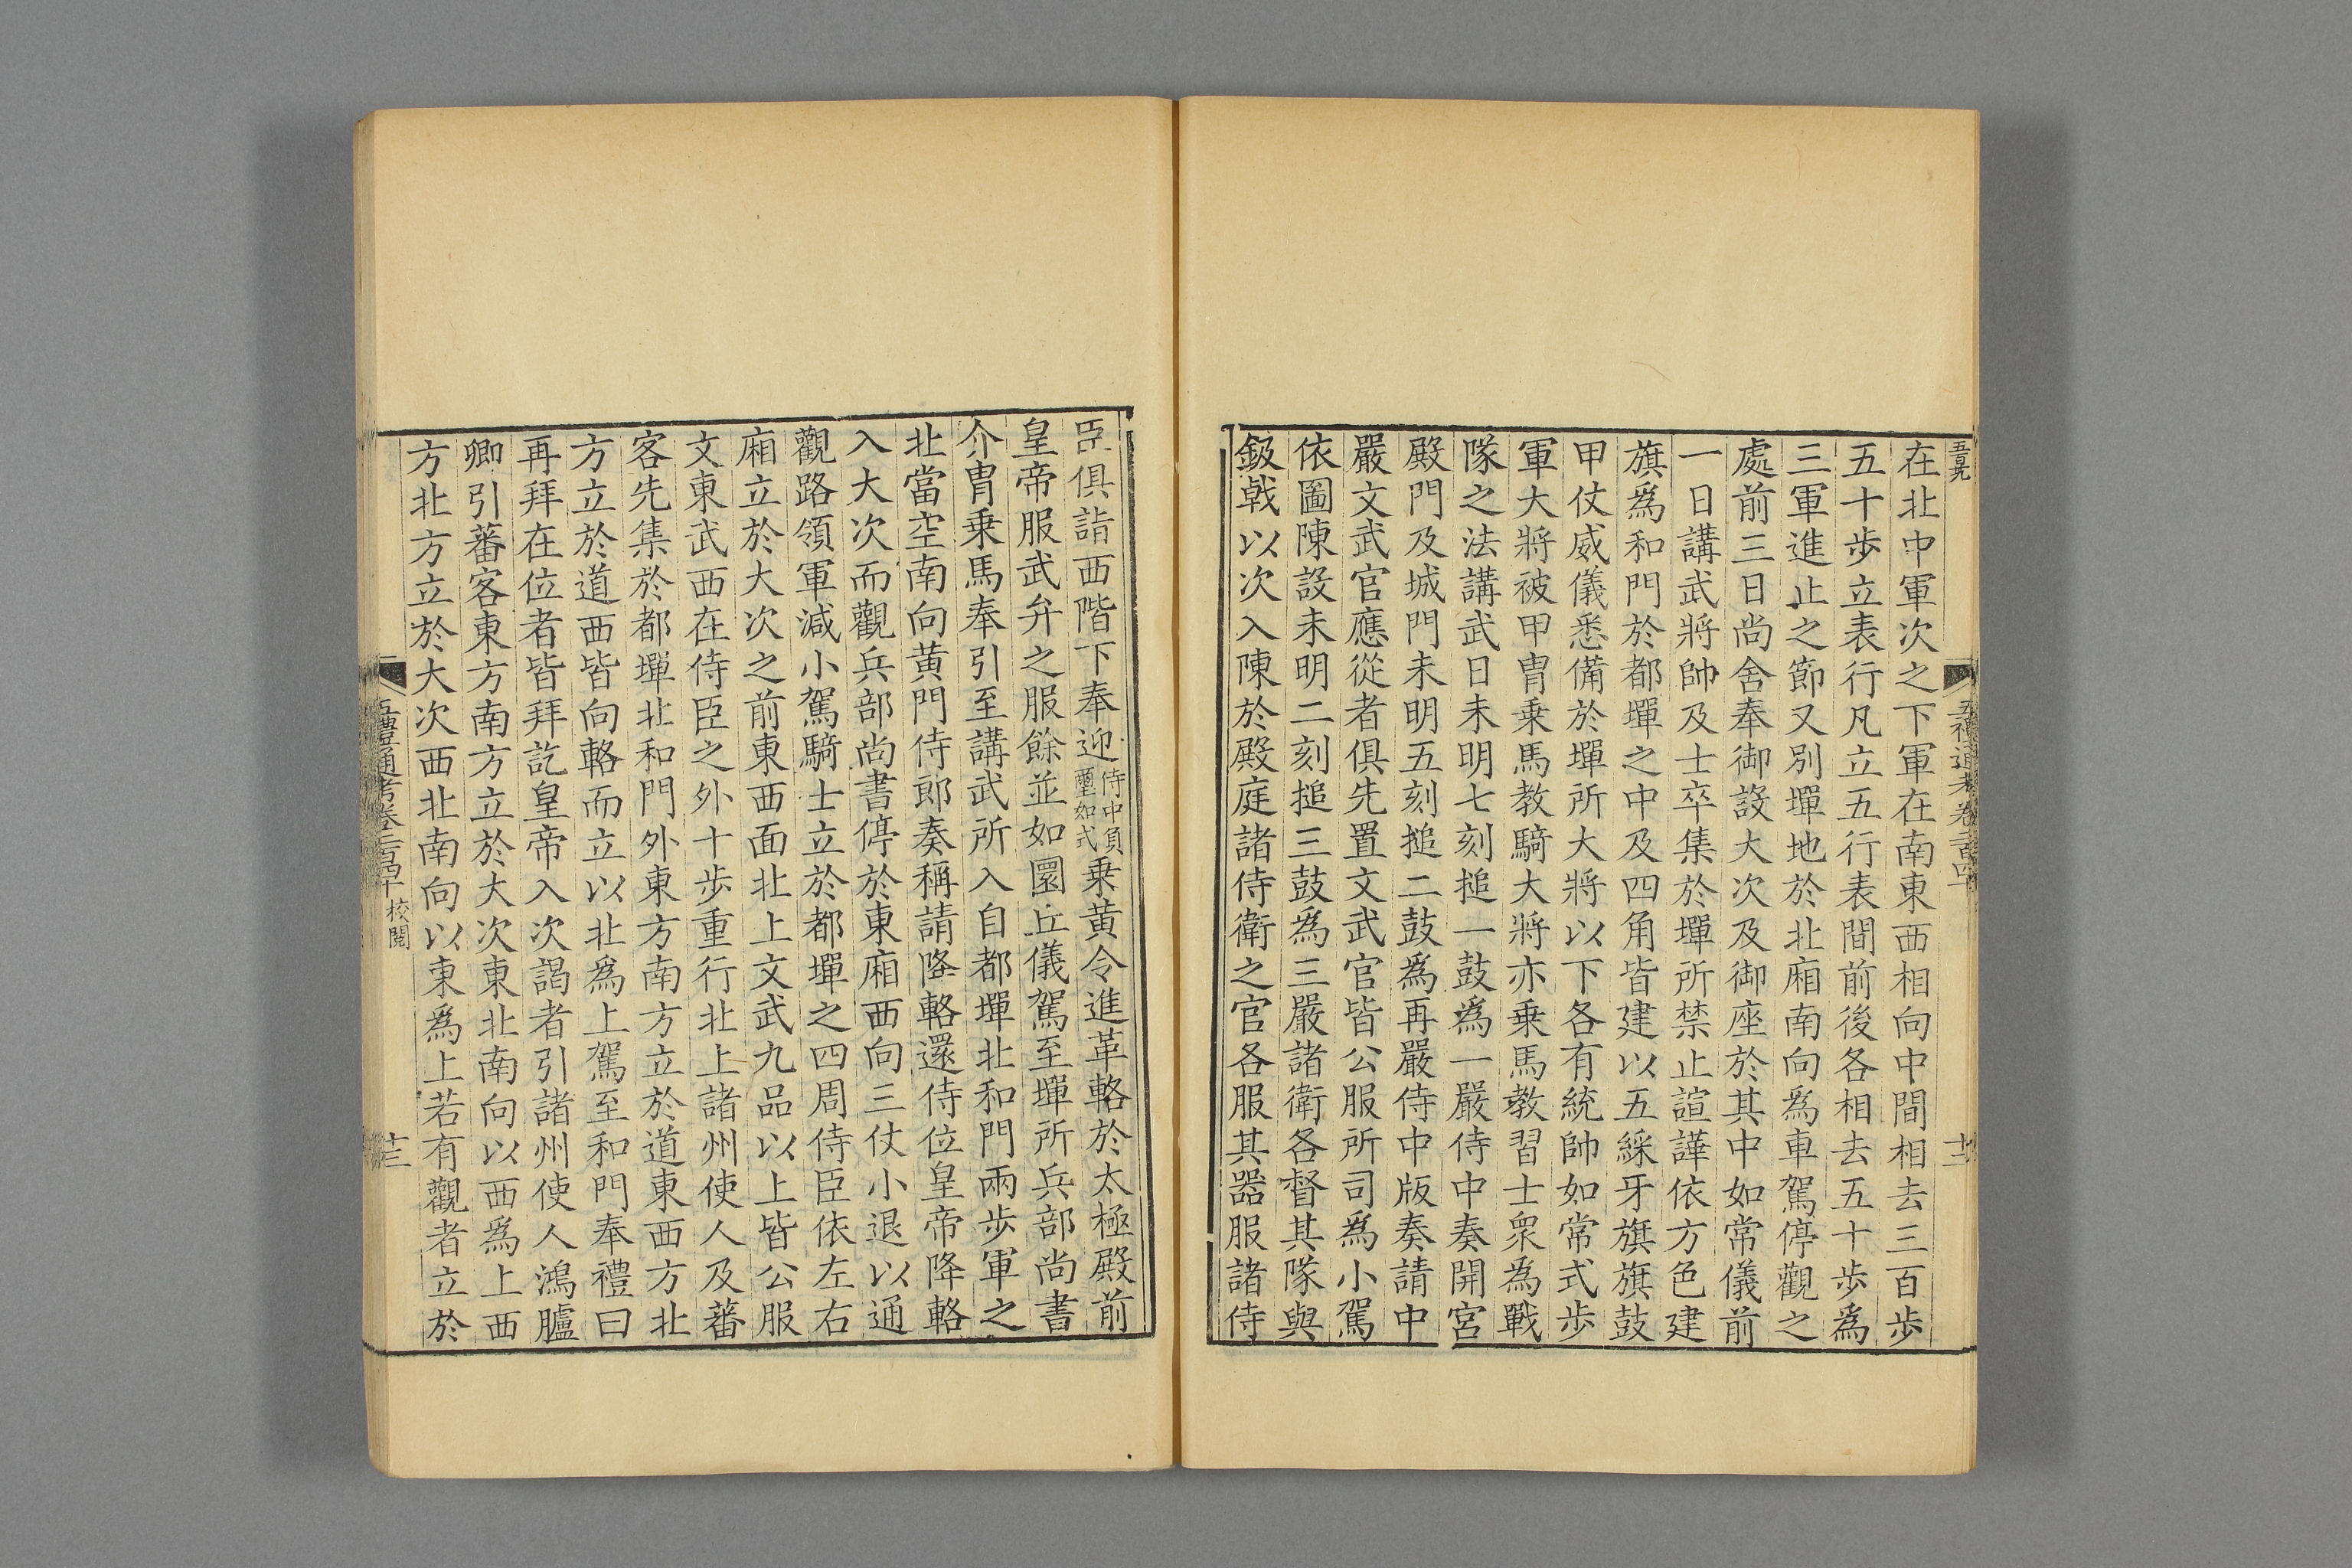 在北中軍次之下軍在南東西相向中間相去三百步
五十步立表行凡立五行表間前後各相去五十步爲
三軍進止之節又別墠地於北廂南向爲車駕停觀之
處前三日尚舍奉御設大次及御座於其中如常儀前
一日講武將帥及士卒集於墠所禁止諠譁依方色建
旗爲和門於都墠之中及四角皆建以五綵牙旗旗鼓
甲仗威儀悉備於墠所大將以下各有統帥如常式步
軍大將被甲冑乗馬教騎大將亦乗馬教習士衆爲戰
隊之法講武日未明七刻搥一鼓爲一嚴侍中奏開宮
殿門及城門未明五刻搥二鼓爲再嚴侍中版奏請中
嚴文武官應從者俱先置文武官皆公服所司爲小駕
依圖陳設未明二刻搥三鼓爲三嚴諸衛各督其隊與
鈒戟以次入陳於殿庭諸侍衛之官各服其器服諸侍
五禮通考卷二百四十
十二
臣俱詣西階下奉迎侍中負璽如式乗黄令進革輅於太極殿前
皇帝服武弁之服餘並如圜丘儀駕至墠所兵部尚書
介冑乗馬奉引至講武所入自都墠北和門兩步軍之
北當空南向黄門侍郎奏稱請降輅還侍位皇帝降輅
入大次而觀兵部尚書停於東廂西向三仗小退以通
觀路領軍減小駕騎士立於都墠之四周侍臣依左右
廂立於大次之前東西面北上文武九品以上皆公服
文東武西在侍臣之外十步重行北上諸州使人及蕃
客先集於都墠北和門外東方南方立於道東西方北
方立於道西皆向輅而立以北爲上駕至和門奉禮曰
再拜在位者皆拜訖皇帝入次謁者引諸州使人鴻臚
卿引蕃客東方南方立於大次東北南向以西爲上西
方北方立於大次西北南向以東爲上若有觀者立於
五禮通考卷二百四十 校閱
十三